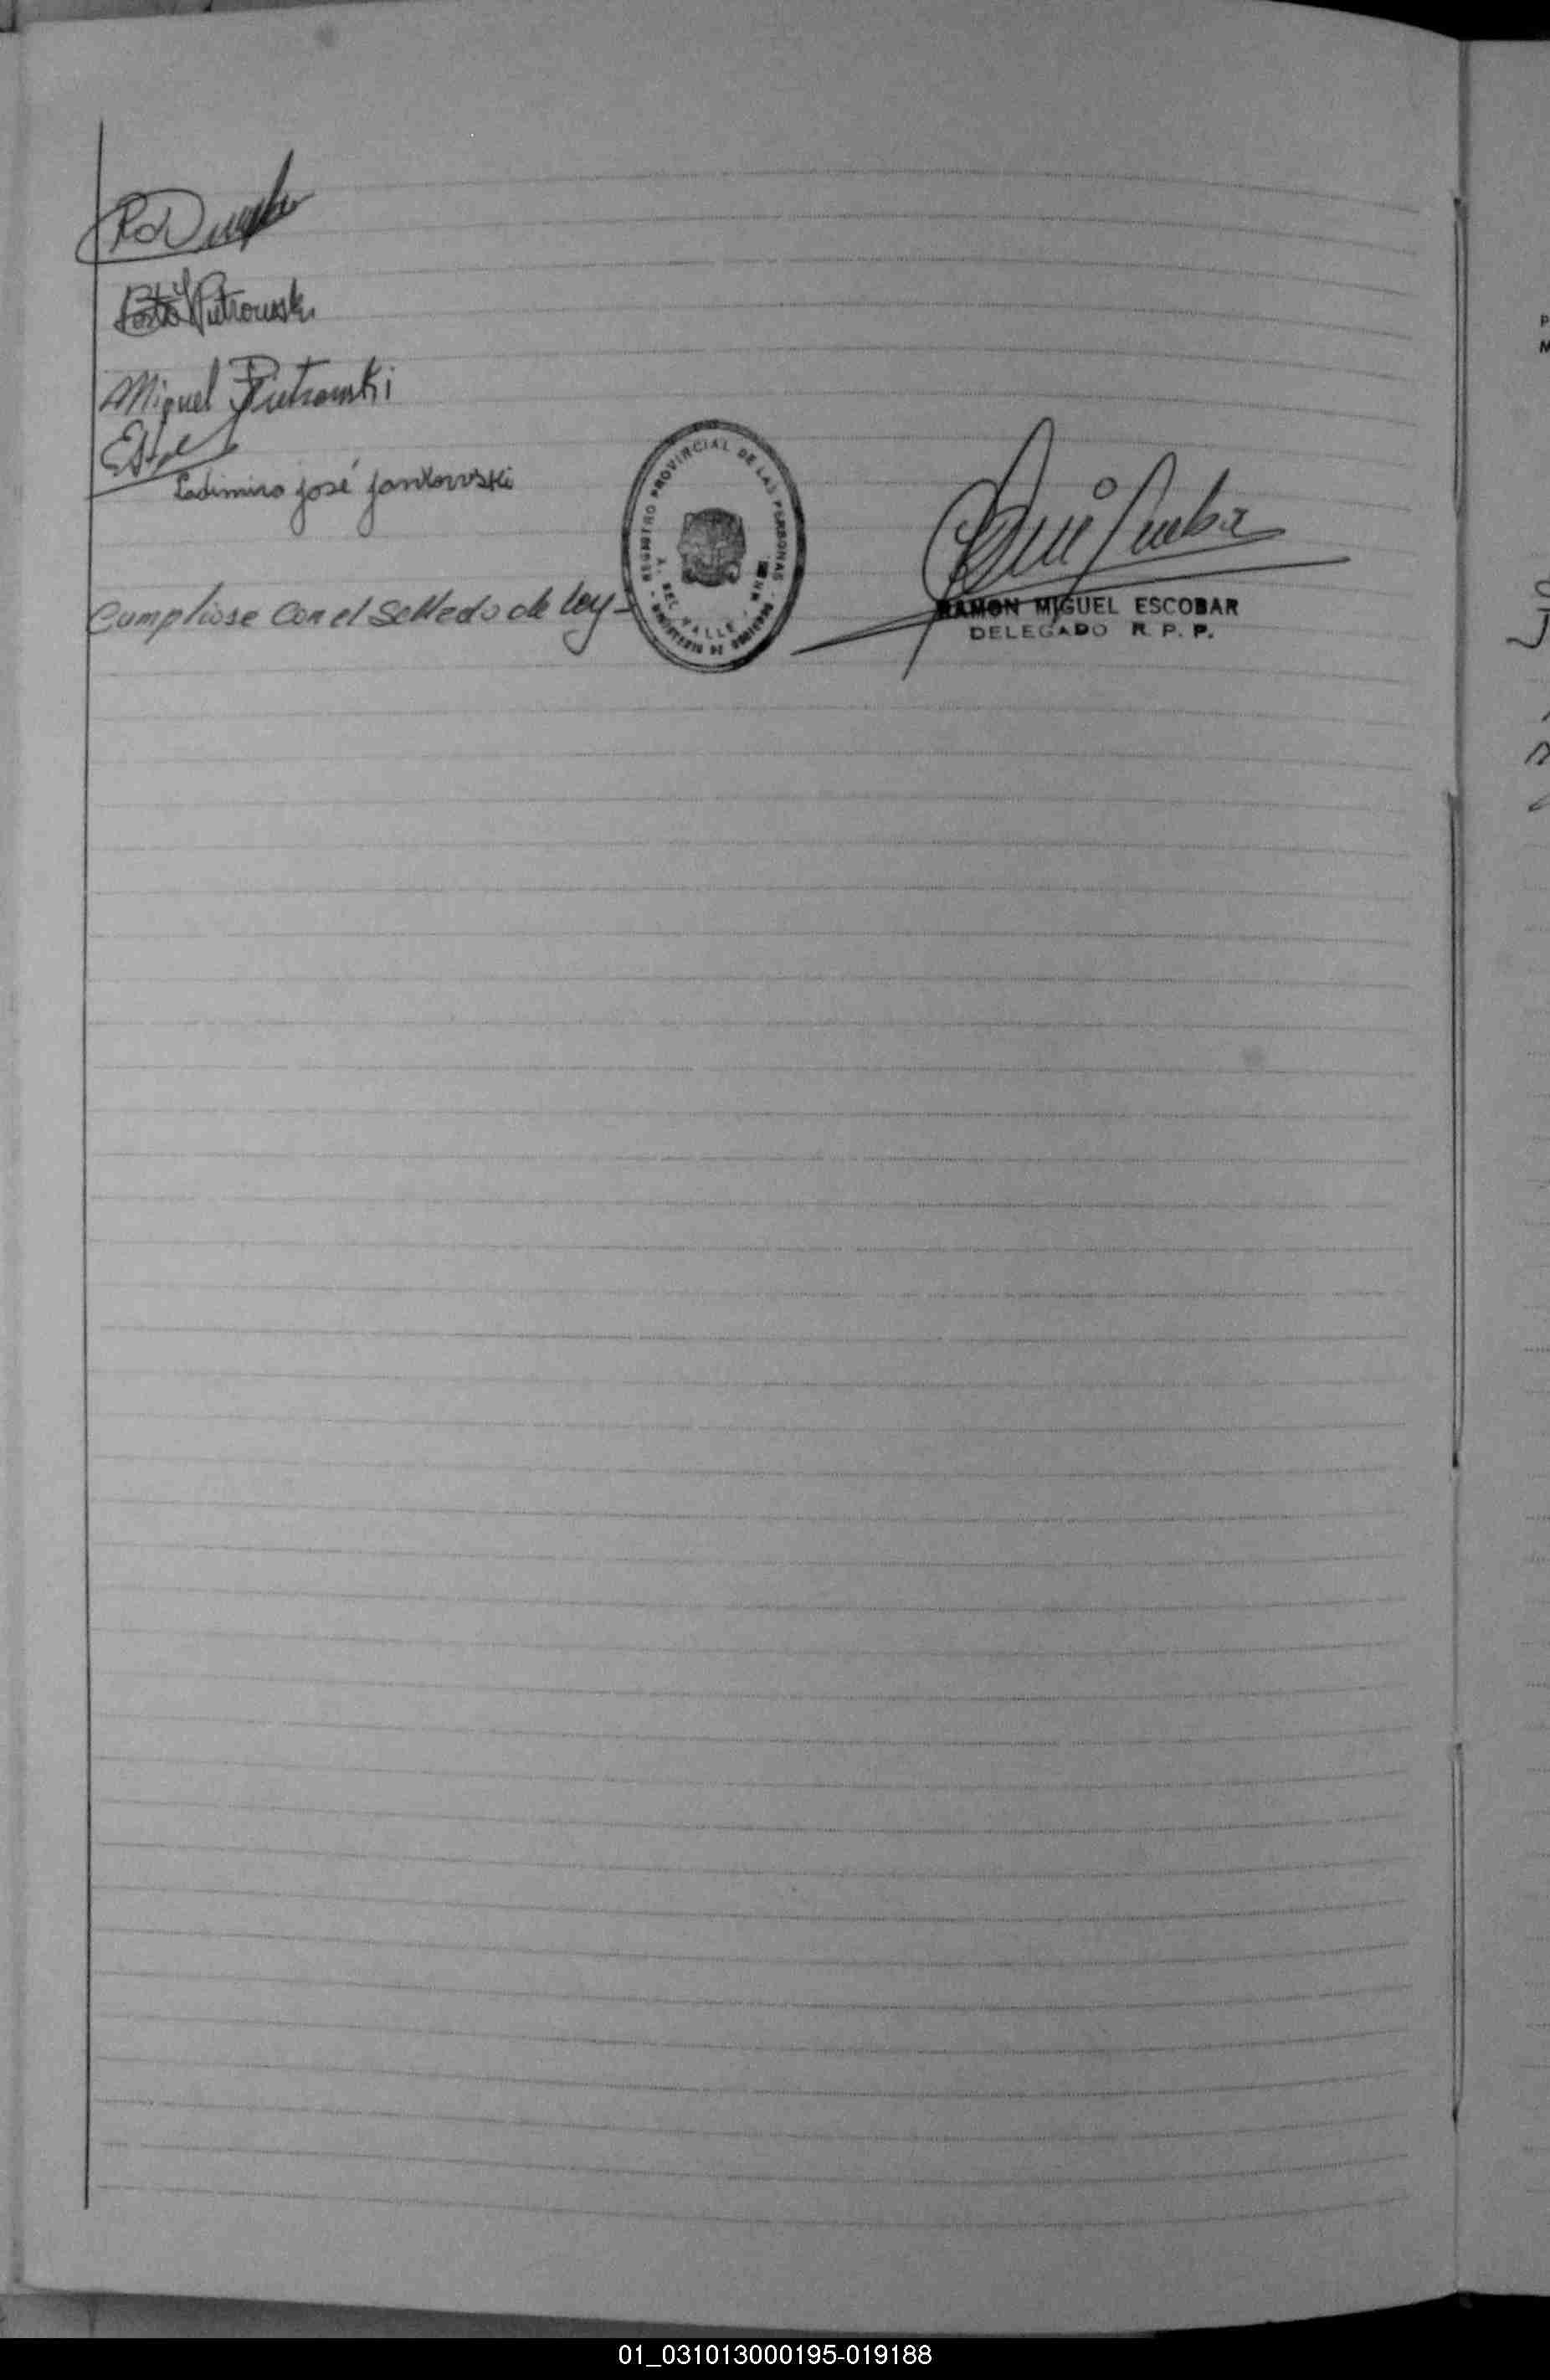 Pietrowski
Miguel Pietrowski
Ladimiro José Jankowski
Cumpliose con el Sellado de ley -
REGISTRO PROVINCIAL DE LAS PERSONAS
A. DEL VALLE
MINISTERIO DE GOBIERNO
RAMON MIGUEL ESCOBAR
DELEGADO R. P. P.
01_031013000195-019188